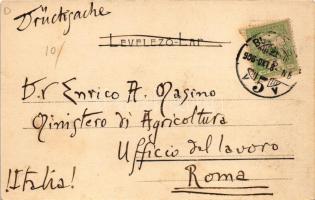 Drucksache
LEVELEZŐ-LAP
Dr Enrico A. Masino
Ministero di Agricoltura
Ufficio del lavoro
Roma
!Italia!